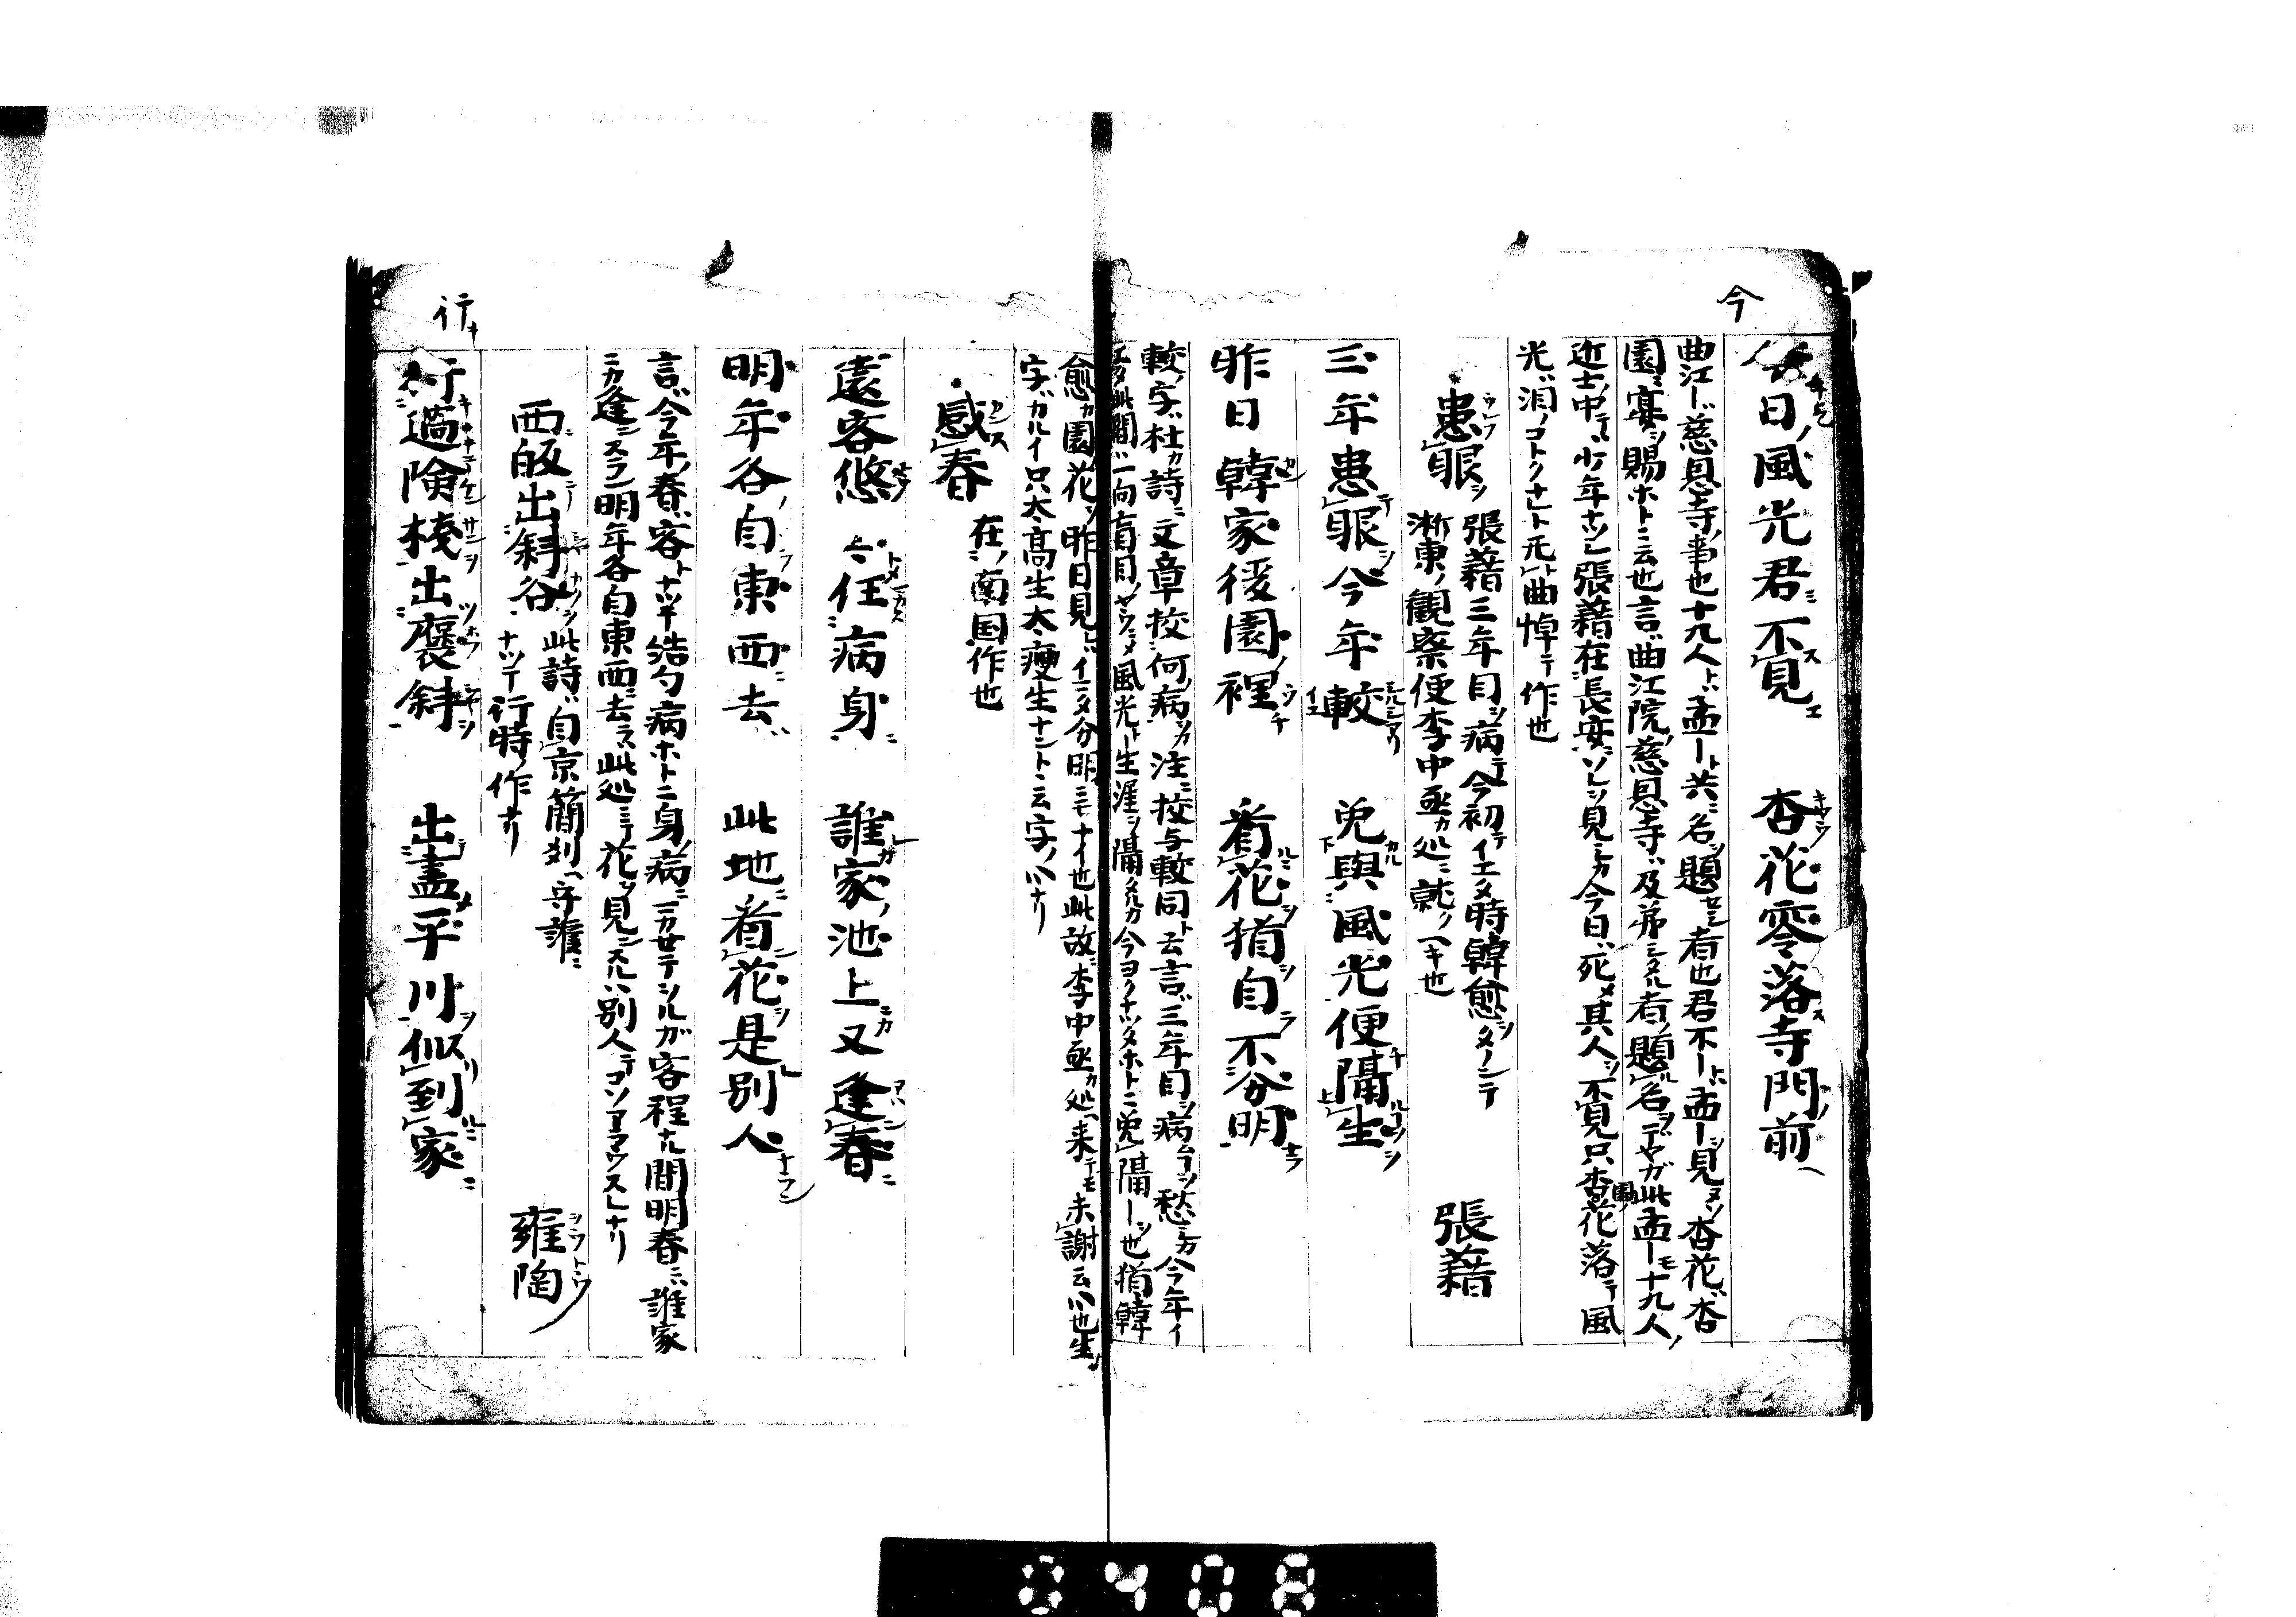 今
今日風光君不見　杏花零落寺門前
曲江ー慈恩寺ノ事也十九人トハ孟ー共ニ名ヲ題セシ者也君不ートハ孟ーヲ見ヌソ杏花ハ杏
園ニ宴ヲ賜ホトニ云也言ハ曲江院慈恩寺ハ及弟シタル者ノ題名ヲ
此孟ーモ十九人ノ
近士ノ中テハ少年ナツシ張藉在長安ソレヲ見シカ今日ハ死メ其人ヲ不見只杏花落テ風
光ハ泪ノコトクナヒト死ヲ曲悼テ作也
患眼　張藉
張藉三年目ヲ病テ今初テイエタ時韓愈ヲタノンテ
浙東ノ観察便李中丞カ処ニ就クヘキ也
三年患眼今年較　免與風光便隔生
昨日韓家後園裡　看花猶自不分明
較ノ字ハ杜カ詩ニ文章挍何病ソカ注ニ挍与較同ト云言ハ三年目ヲ病ムーヲ愁シカ今年イ
此間ハ一向盲目ノヤウニメ風光ト生涯ヲ隔タルカ今ヨクナツタホトニ免隔ーヲ也猶韓
愈カ園ノ花ヲ昨日見レハイマタ分明ニモナイ也此故ニ李中丞カ処ヘ来テモ未謝云心也生ノ
字ハカルイ只大高生太瘦生ナントト云字ノ心ナリ
感春
在南国作也
遠客悠々任病身　誰家池上又逢春
明年各自東西去　此地看花是別人
言ハ今年ノ春ハ客トナツテ結句病ホトニ身ハ病ニマカセテシルガ客程ナル間明春ニハ誰家
ニカ逢ンスラン明年各自東西ニ去ラハ此処ニテ花ヲ見ンスルハ別人テコソアラウスレナリ
西皈出斜谷　雍陶
此詩ハ自京簡刕ヘ守護ニ
ナツテ行時ノ作ナリ
行
行過険棧出褒斜　出盡平川似到家
0408